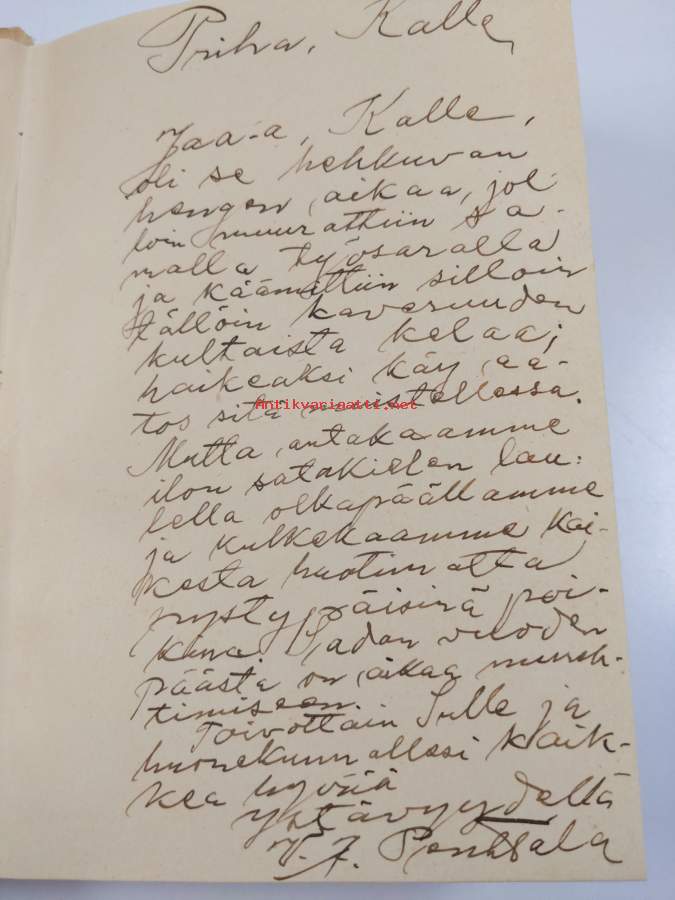 Priha, Kalle,
Jaa-a, Kalle,
oli se hehkuvan
hengen aikaa, jol-
loin muurattiin sa-
malla työsaralla
ja käämittiin silloin
tällöin kaveruuden
kultaista kelaa;
haikeaksi käy aa-
tos sitä muistellessa.
Antikvariaatti.net
Mutta antakaamme
ilon satakielen lau-
lella olkapäällämme
ja kulkekaamme kai-
kesta huolimatta
pystypäisinä poi-
kina. Sadan vuoden
päästä on aikaa mureh-
timiseen.
Toivottain Sulle ja
huonekunnallesi kaik-
kea hyvää
ystävyydellä
V. J.